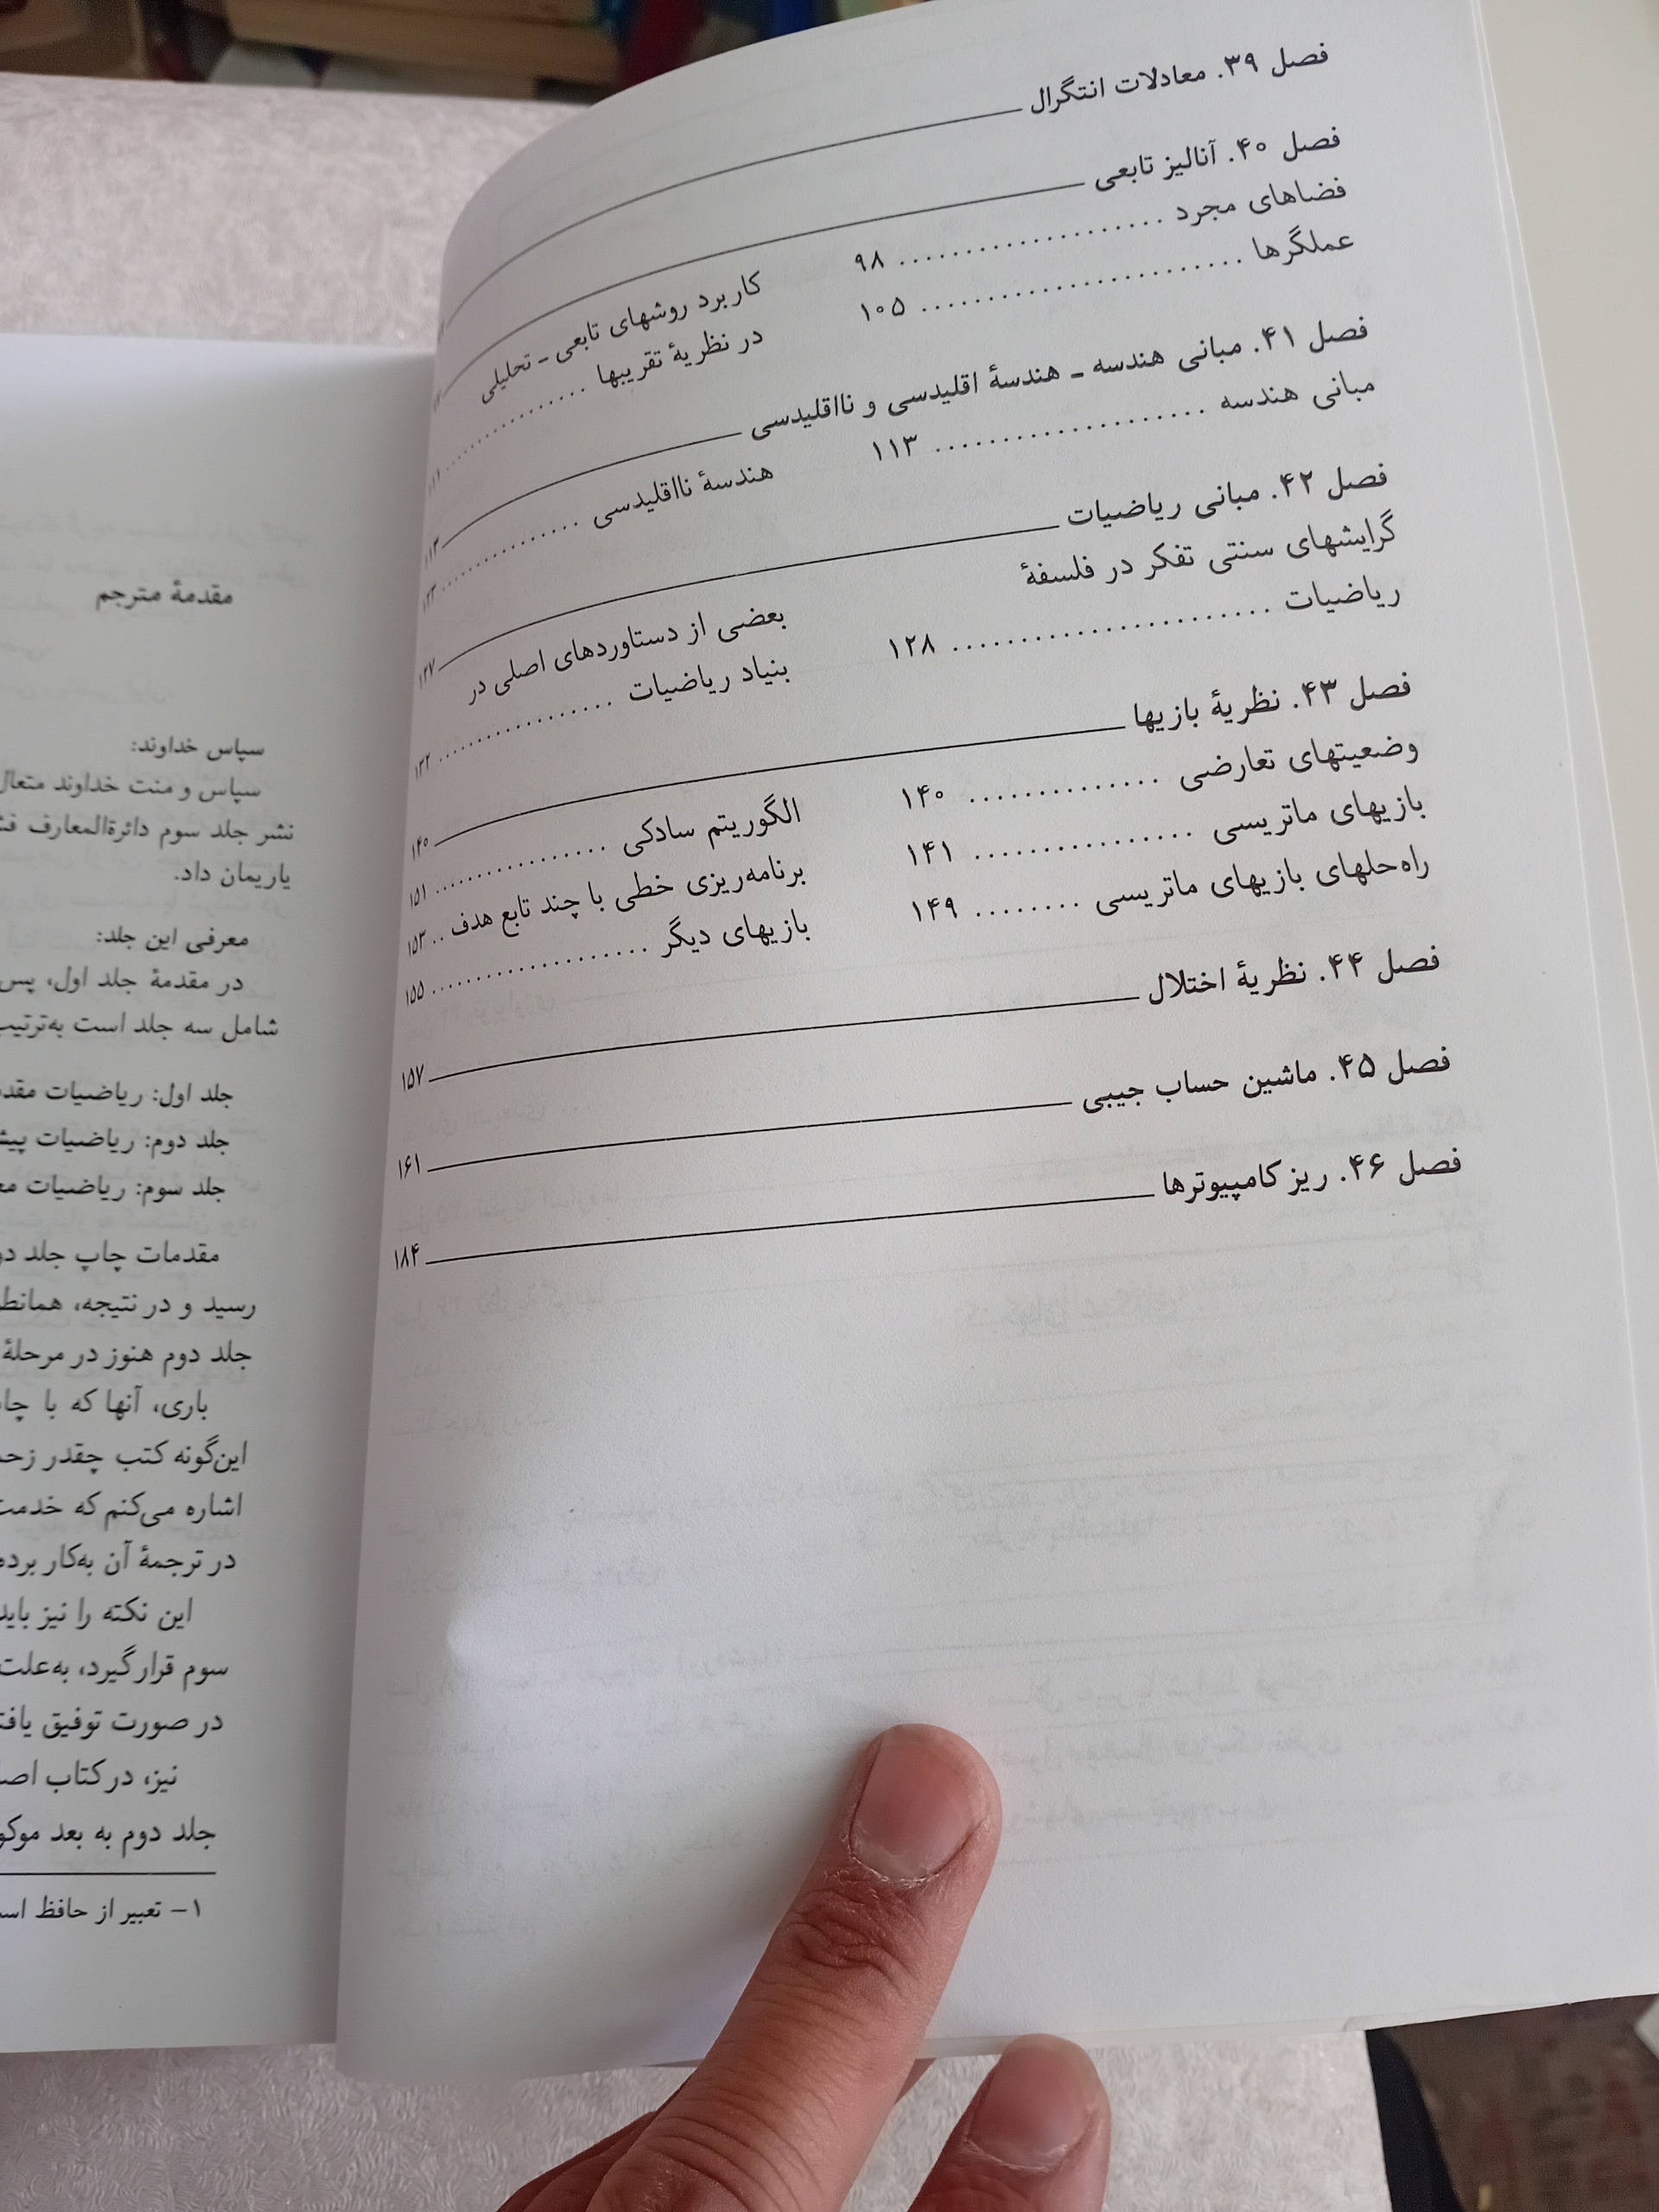 فصل ۳۹. معادلات انتگرال
فصل ۴۰. آنالیز تابعی
فضاهای مجرد .................... ۹۸
عملگرها ........................ ۱۰۵
کاربرد روشهای تابعی ـ تحلیلی
در نظریهٔ تقریبها ................ ۱۱۱
فصل ۴۱. مبانی هندسه ـ هندسهٔ اقلیدسی و نااقلیدسی ۱۱۳
مبانی هندسه .................... ۱۱۳
هندسهٔ نااقلیدسی ................ ۱۲۳
فصل ۴۲. مبانی ریاضیات ۱۲۷
گرایشهای سنتی تفکر در فلسفهٔ
ریاضیات ........................ ۱۲۸
بعضی از دستاوردهای اصلی در
بنیاد ریاضیات ................ ۱۳۲
فصل ۴۳. نظریهٔ بازیها ۱۴۰
وضعیتهای تعارضی ............... ۱۴۰
بازیهای ماتریسی ................. ۱۴۱
راه‌حلهای بازیهای ماتریسی ........ ۱۴۹
الگوریتم سادکی ................ ۱۵۱
برنامه‌ریزی خطی با چند تابع هدف .. ۱۵۳
بازیهای دیگر .................... ۱۵۵
فصل ۴۴. نظریهٔ اختلال ۱۵۷
فصل ۴۵. ماشین حساب جیبی ۱۶۱
فصل ۴۶. ریزکامپیوترها ۱۸۴
مقدمهٔ مترجم
سپاس خداوند:
سپاس و منت خداوند متعال
نشر جلد سوم دائرةالمعارف
یاریمان داد.
معرفی این جلد:
در مقدمهٔ جلد اول، پس
شامل سه جلد است به‌ترتیب
جلد اول: ریاضیات
جلد دوم: ریاضیات
جلد سوم: ریاضیات
مقدمات چاپ جلد
رسید و در نتیجه،
جلد دوم هنوز در مرحلهٔ
باری، آنها که با
این‌گونه کتب چقدر
اشاره می‌کنم که
در ترجمهٔ آن به‌کار
این نکته را نیز
سوم قرار گیرد، به‌علت
در صورت توفیق
نیز، در کتاب
جلد دوم به بعد
۱– تعبیر از حافظ